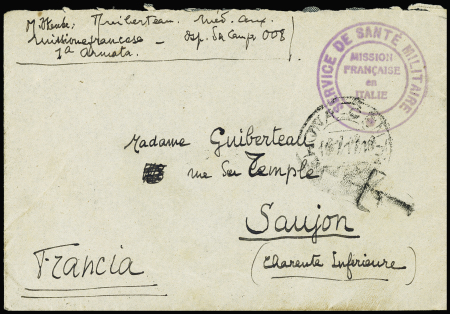 Guiberteau. Méd. aux.
Missione francese – Osp. da Campo 008
1a Armata
SERVICE DE SANTÉ MILITAIRE
MISSION
FRANÇAISE
en
ITALIE
Madame Guiberteau
rue du Temple
Saujon
(Charente Inférieure)
Francia